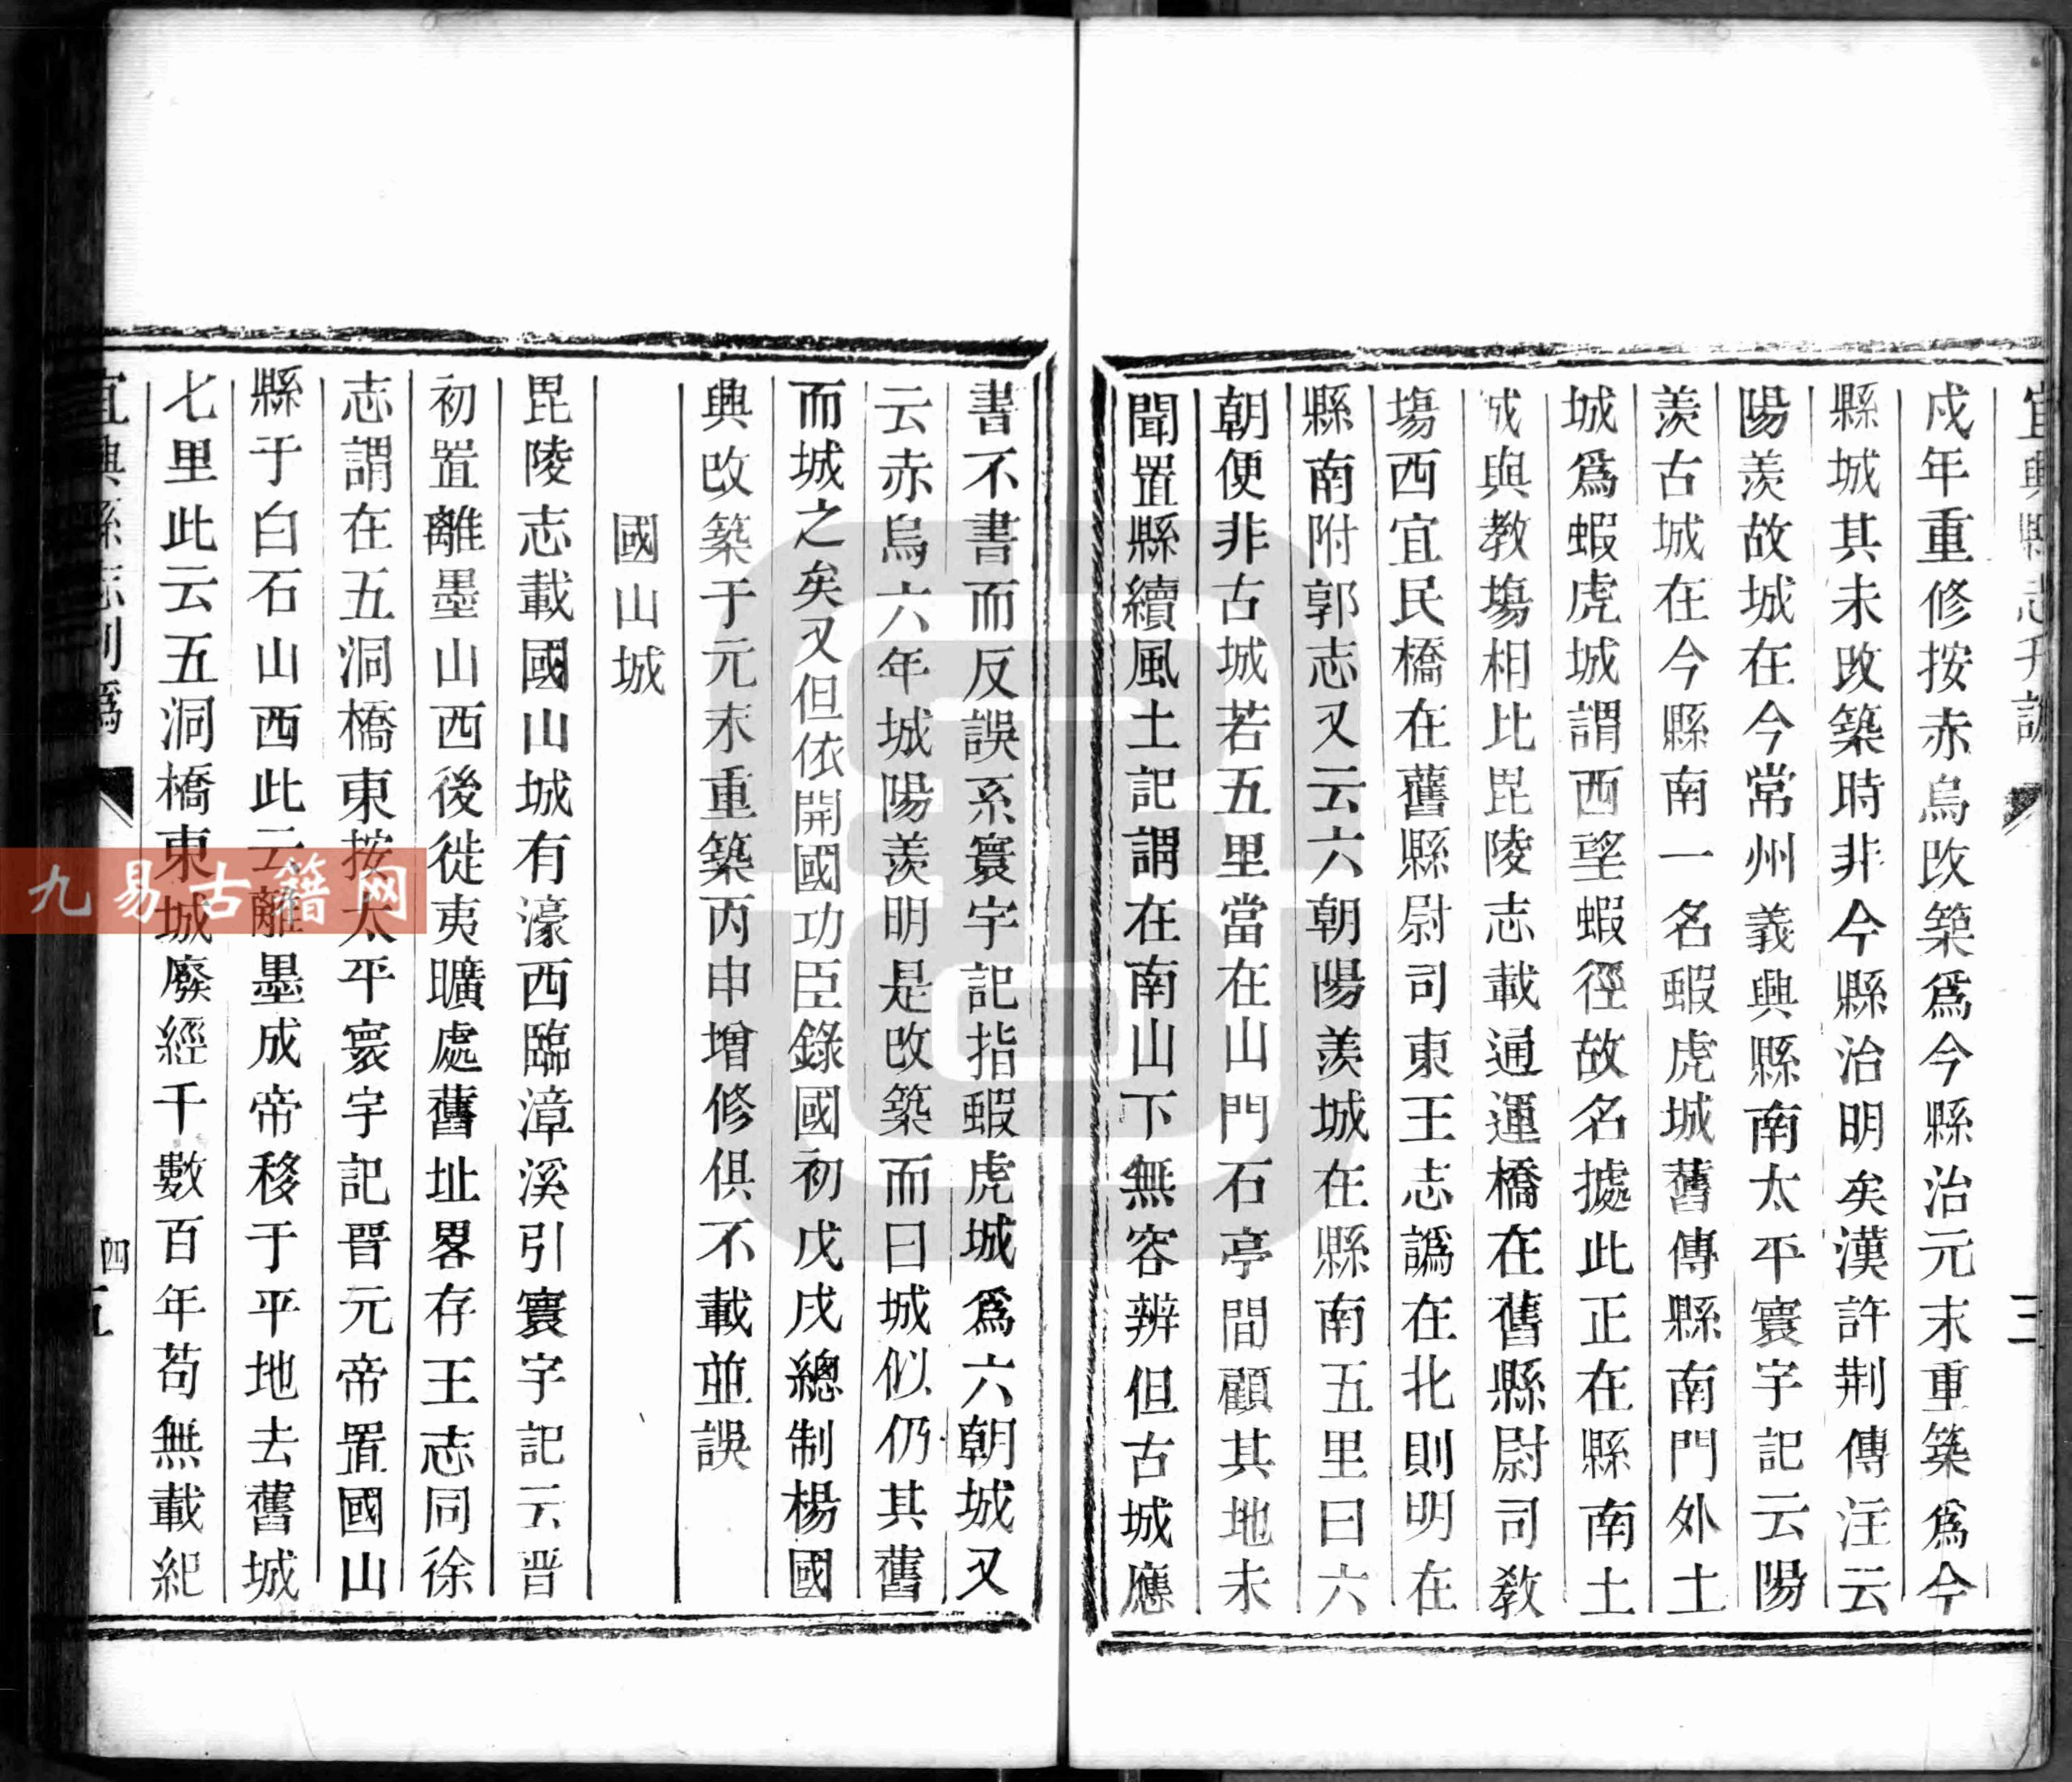 宜興縣志刋譌
三
戍年重修按赤烏改築爲今縣治元末重築爲今
縣城其未改築時非今縣治明矣漢許荆傳注云
陽羨故城在今常州義興縣南太平寰宇記云陽
羨古城在今縣南一名蝦虎城舊傳縣南門外土
城爲蝦虎城謂西望蝦徑故名據此正在縣南土
城與教塲相比毘陵志載通運橋在舊縣尉司教
塲西宜民橋在舊縣尉司東王志譌在北則明在
縣南附郭志又云六朝陽羨城在縣南五里曰六
朝便非古城若五里當在山門石亭間顧其地未
聞置縣續風土記謂在南山下無容辨但古城應
書不書而反誤系寰宇記指蝦虎城爲六朝城又
云赤烏六年城陽羨明是改築而曰城似仍其舊
而城之矣又但依開國功臣錄國初戊戌總制楊國
興改築于元末重築丙申增修俱不載並誤
國山城
毘陵志載國山城有濠西臨漳溪引寰宇記云晋
初置離墨山西後徙夷曠處舊址畧存王志同徐
志謂在五洞橋東按太平寰宇記晋元帝置國山
縣于白石山西此云離墨成帝移于平地去舊城
七里此云五洞橋東城廢經千數百年苟無載紀
宜興縣志刋譌
四
五
九易古籍网